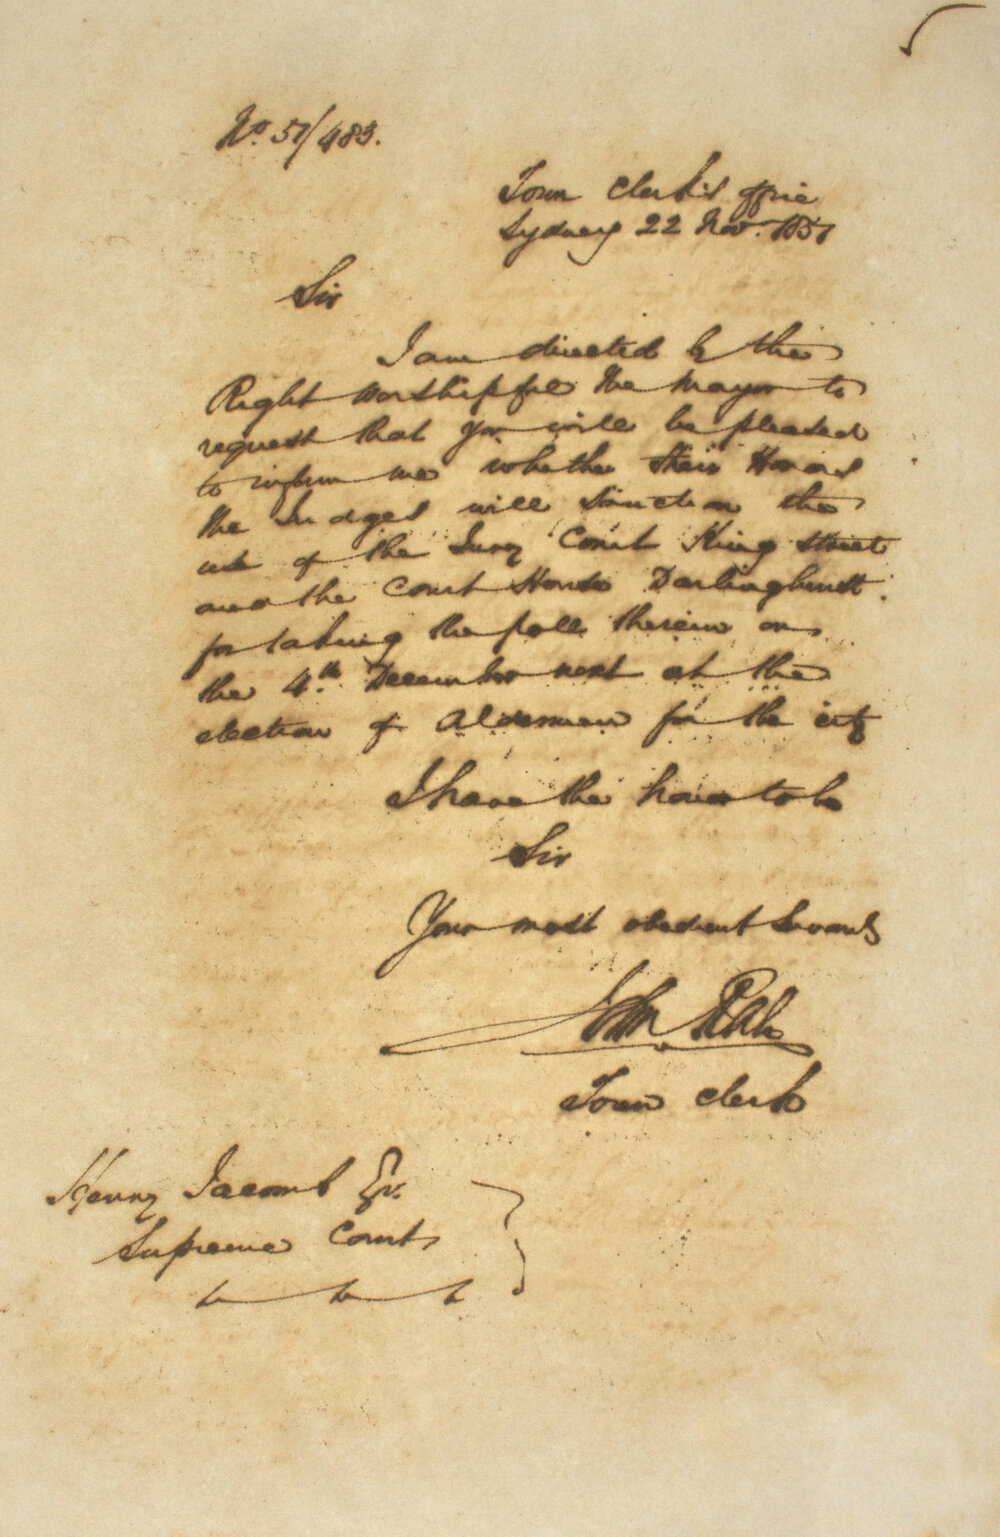 No. 51/483.
Town Clerk's Office
Sydney 22 Nov. 1851
Sir
I am directed by the
Right Worshipful the Mayor to
request that you will be pleased
to inform me whether their Honors
the Judges will sanction the
use of the Jury Court King Street
and the Court House Darlinghurst
for taking the poll therein on
the 4th December next at the
election of Aldermen for the city
I have the honor to be
Sir
Your most obedient Servant
John Rae
Town Clerk
Henry Jacomb Esqr.
Supreme Court